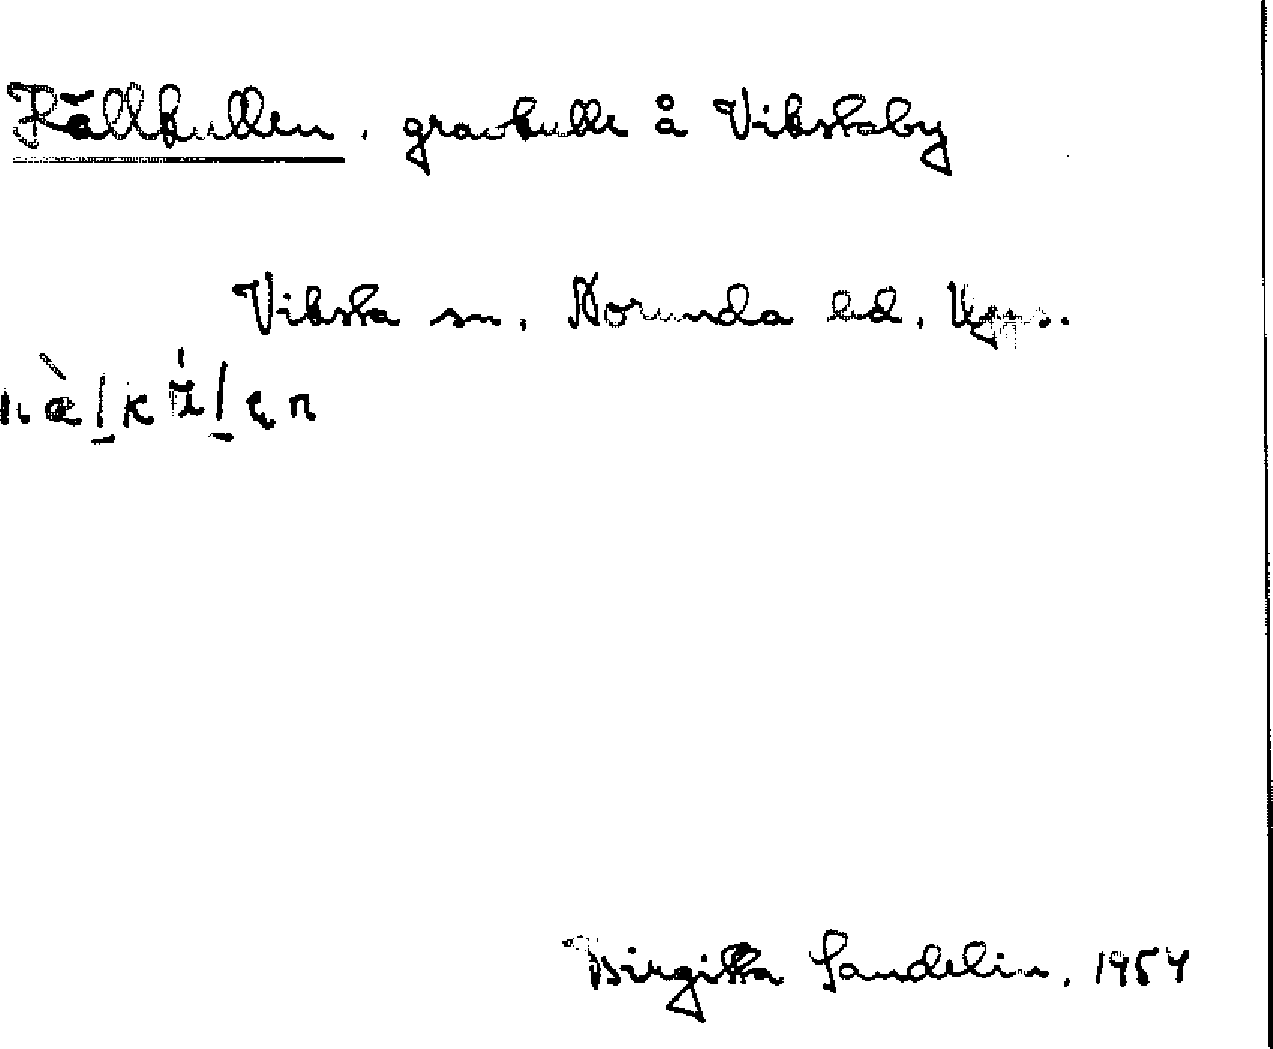 Hällkullen, gravkulle å Vikstaby
Viksta sn. Norunda hd. Upps.
Birgitta Sandelin. 1954